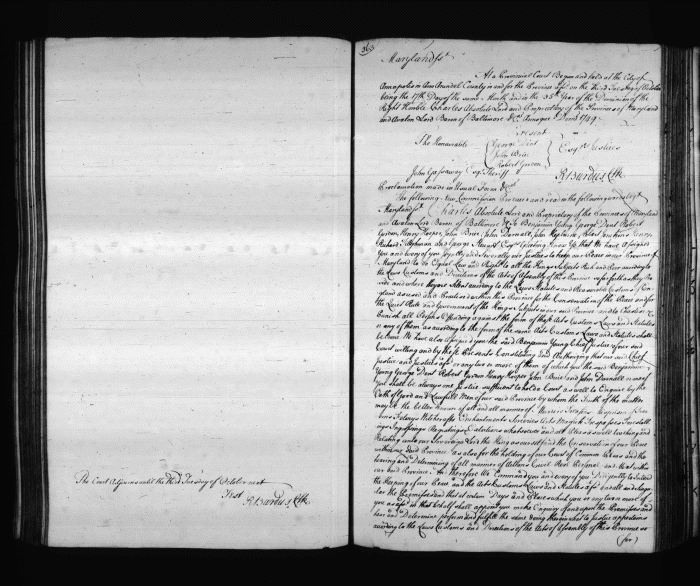 The Court Adjourns untill the third Tuesday of October next
Test R Burdus Clk
363
Maryland ss
At a Provincial Court Begun and held at the City of
Annapolis in Ann Arundel County in and for the Province afd on the third Tuesday of October
being the 17th Day of the same Month and in the 35th Year of the Dominion of the
Right Honble Charles Absolute Lord and Proprietary of the Provinces of Maryland
and Avalon Lord Baron of Baltimore &c. Annoque Domi 1749
Present
The Honourable
George Dent
John Brice
Robert Gordon
Esqrs Justices
John Gassaway Esqr Sheriff
R Burdus Clk
Proclamation made in Usual Form
The following New Commission and read in the following words
Maryland ss Charles Absolute Lord and Proprietary of the Provinces of Maryland
and Avalon Lord Baron of Baltimore &c To Benjamin Young George Dent Robert
Gordon Henry Hooper John Brice John Darnall John
Richard Tilghman and George Steuart Esqrs Greeting Know Ye that We have Assigned
You and every of you Joyntly and Severally our Justices to keep our Peace
Maryland to do Equal Law and Right to all the Kings Subjects Rich and Poor according to
the Laws Customs and Directions of the Acts of Assembly of this Province so far forth as they
and where they are Silent according to the Laws Statutes and Reasonable Customs of
England as used and Practiced within this Province for the Conservation of the Peace and for
the Quiet Rule and Government of the Kings Subjects and to Chastize
Punish all Persons Offending against the form of those Acts Customs Laws and Statutes
or any of them as according to the form of the same Acts Customs Laws and Statutes shall
be done We have also Assigned you the said Benjamin Young Chief Justice of our said
Court willing and by these Presents Constituting and Authorizing that our said Chief
Justice and Justices afd or any two or more of them of which you the said Benjamin
Young George Dent Robert Gordon Henry Hooper John Brice and John Darnall
shall be always one Justice sufficient to hold a Court as well to Enquire by the
Oath of Good and Lawfull Men of our said Province by whom the Truth of the matter
may be the better known of all and all manner of
Felonys Witchcrafts Enchantments Sorceries Arts Magick Trespasses Forestallings
Ingrossings Regratings Extortions whatsoever and all Pleas
Relating unto our Sovereign Lord the King as our self and the Conservation of our Peace
within our said Province as also for the holding of our Court of Common Pleas and the
hearing and Determining of all manner of Actions Real Personal and Mixt within
our said Province We therefore Command you and every of you Diligently to Intend
the Keeping of our Peace and the Acts Customs Laws and Statutes afd
the Premises and that at certain Days and Places which you or any two or more of
you as afd in that behalf shall appoint you make Enquiry of and upon the Premises and
hear and Determine perform and fulfill the same doing therein what to Justice appertains
according to the Laws Customs and Directions of the Acts of Assembly of this Province
(for)